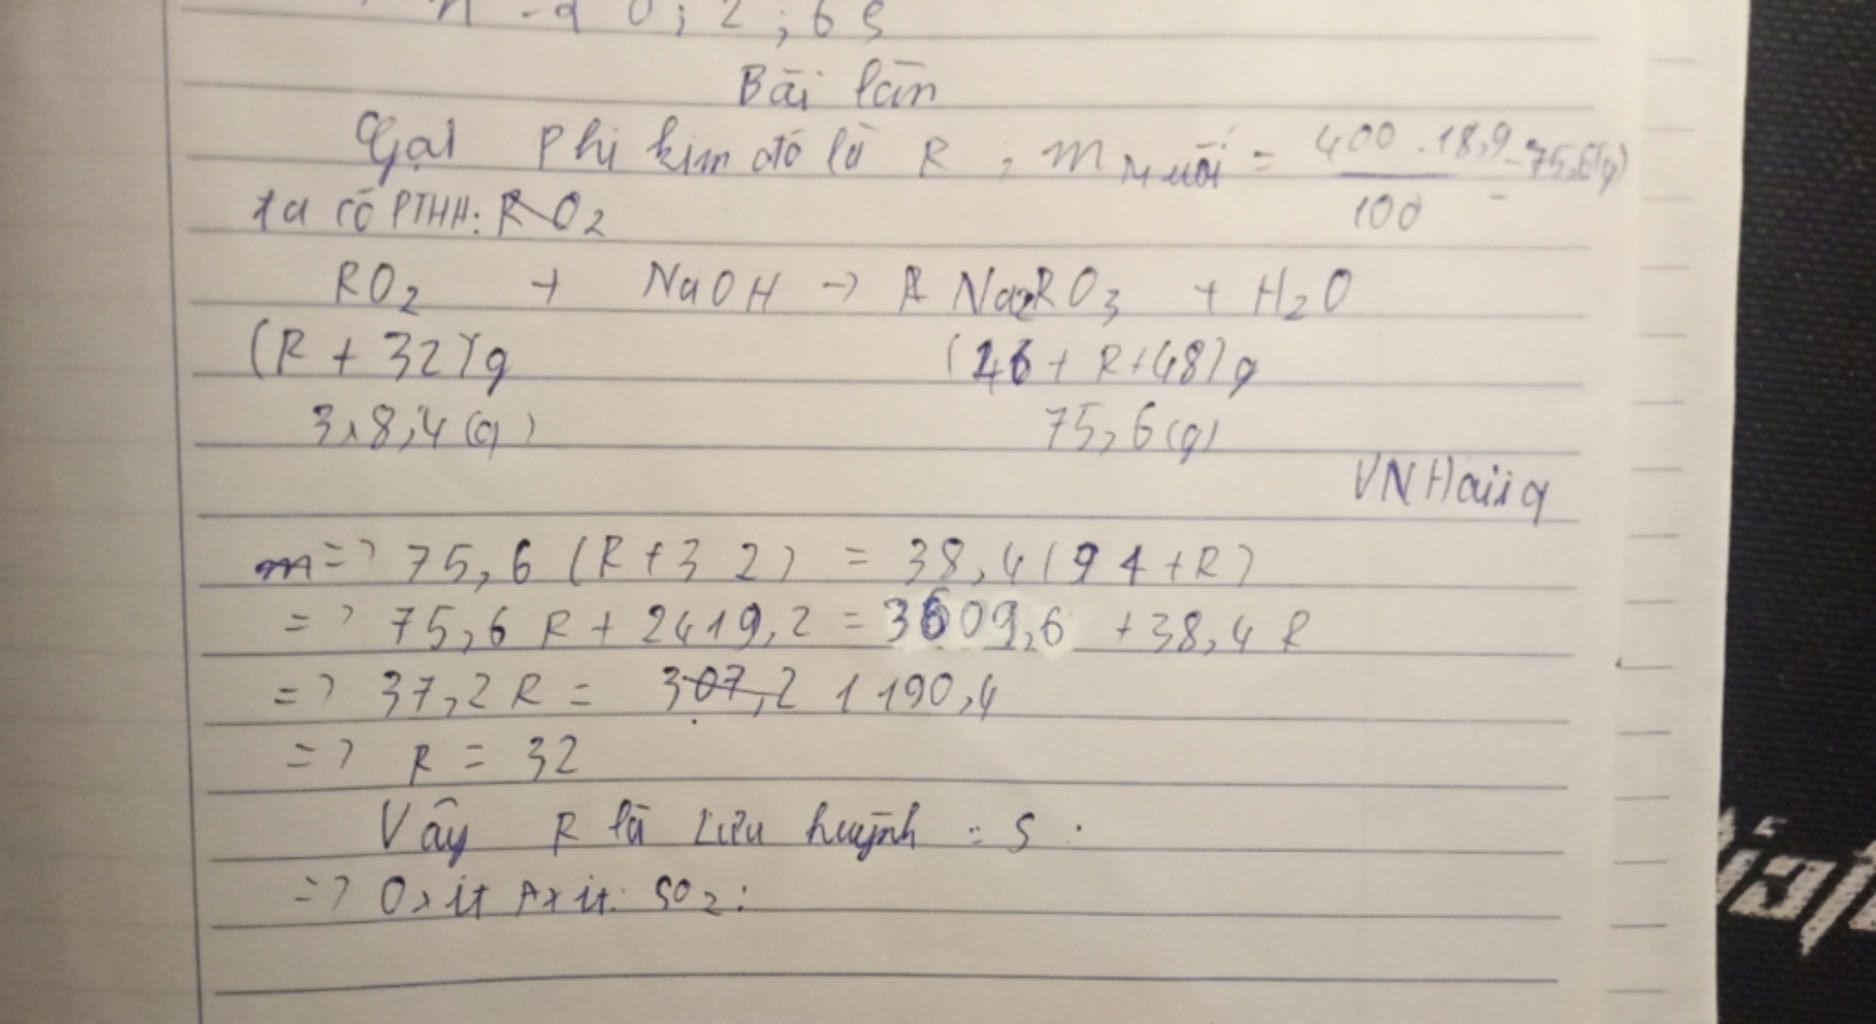 0 ; 2 ; 6 S
Bài làm
Gọi Phi kim đó là R , m muối = 400 . 18,9 / 100 = 75,6(g)
ta có PTHH: RO2
RO2 + NaOH -> Na2RO3 + H2O
(R + 32)g (46 + R + 48)g
38,4 (g) 75,6 (g)
VN Haiiq
=> 75,6 (R + 32) = 38,4 (94 + R)
=> 75,6 R + 2419,2 = 3609,6 + 38,4 R
=> 37,2 R = 307,2 1190,4
=> R = 32
Vậy R là Lưu huỳnh : S .
=> Oxit Axit: SO2 :